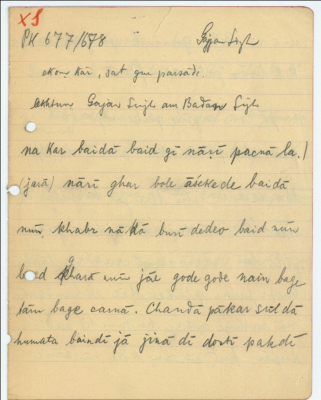 XS
PK 677/678 Gajja Singh
ekom kār, sat gur parsādi.
Lekhtum Gajan Singh am Badan Singh
na kar baidā baid gī nāṛī pacnā la. /
(jarā) nārī ghar bole āśekede baidā
nūṃ khabr nā kā burī dedeo baid nūn
baid gharā nūn jāe gode gode nain bage
tārū bage carnā. Chandā pākar sil dā
humata baindī jā jinā dī dosti pakdī